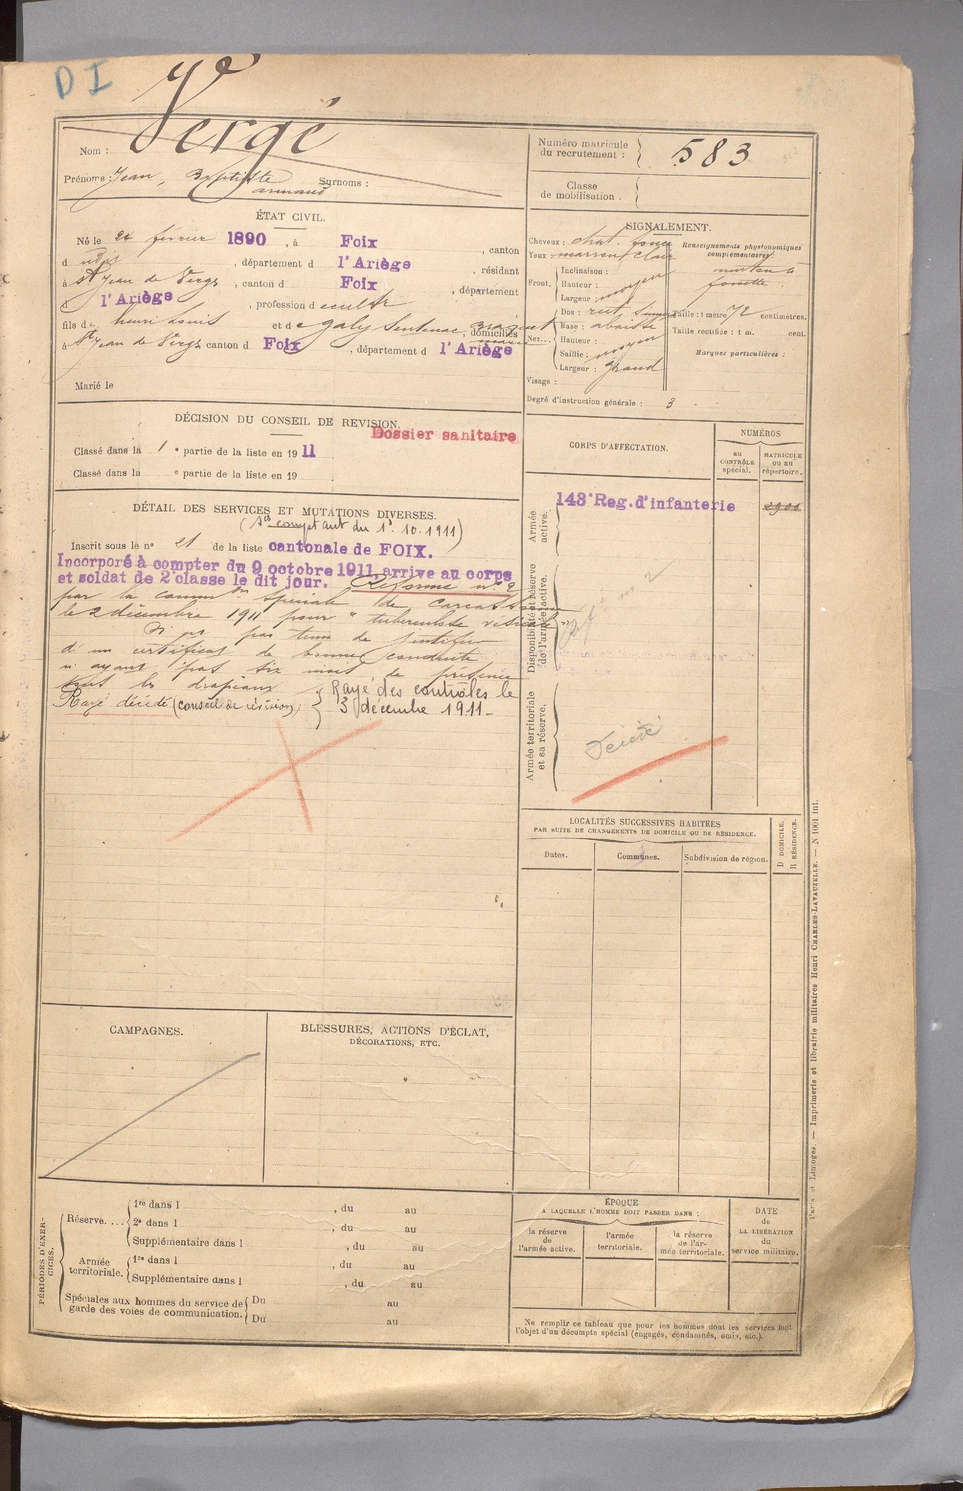 D I
Vergé
Nom :
Prénoms : Jean, Baptiste Surnoms :
armand
Numéro matricule
du recrutement : 583
Classe
de mobilisation.
ÉTAT CIVIL.
Né le 24 février 1890, à Foix, canton
d dudit, département d l'Ariège, résidant
à St Jean de Verges, canton d Foix, département
d l'Ariège, profession d cultr
fils de henri Louis et de Galy Sentenac, domiciliés
à St Jean de Verges canton d Foix, département d l'Ariège
Marié le
SIGNALEMENT.
Cheveux : chat. foncé
Yeux marron clair
Front.
Inclinaison :
Hauteur : moyen
Largeur :
Nez...
Dos : rect.
Base : abaissée
Hauteur :
Saillie : moyen
Largeur : grand
Visage :
Renseignements physionomiques
complémentaires :
menton à
fossette
Taille : 1 mètre 72 centimètres.
Taille rectifiée : 1 m. cent.
Marques particulières :
Degré d'instruction générale : 3
DÉCISION DU CONSEIL DE REVISION.
Dossier sanitaire
Classé dans la 1e partie de la liste en 1911
Classé dans la e partie de la liste en 19
CORPS D'AFFECTATION.
NUMÉROS
au
CONTRÔLE
spécial.
MATRICULE
ou au
répertoire.
Armée
active.
143e Reg. d'infanterie
Disponibilité et réserve
de l'armée active.
Armée territoriale
et sa réserve.
Décédé
DÉTAIL DES SERVICES ET MUTATIONS DIVERSES.
(Sce compt ant du 1er.10.1911)
Inscrit sous le n° 21 de la liste cantonale de FOIX.
Incorporé à compter du 9 octobre 1911 arrive au corps
et soldat de 2e classe le dit jour. Réformé n° 2
par la common spéciale de Carcassonne
le 2 décembre 1911 pour "tuberculose vésicale"
N'a pas tenu de justifier
d'un certificat de bonne conduite
n'ayant pas six mois de présence
sous les drapeaux
Rayé des contrôles le
3 décembre 1911.
Rayé décédé (conseil de révision)
LOCALITÉS SUCCESSIVES HABITÉES
PAR SUITE DE CHANGEMENTS DE DOMICILE OU DE RÉSIDENCE.
Dates.
Communes.
Subdivision de région.
D DOMICILE.
R RÉSIDENCE.
CAMPAGNES.
BLESSURES, ACTIONS D'ÉCLAT,
DÉCORATIONS, ETC.
PÉRIODES D'EXER-
CICES.
Réserve....
1re dans l , du au
2e dans l , du au
Supplémentaire dans l , du au
Armée
territoriale.
1re dans l , du au
Supplémentaire dans l , du au
Spéciales aux hommes du service de
garde des voies de communication.
Du au
Du au
ÉPOQUE
A LAQUELLE L'HOMME DOIT PASSER DANS :
la réserve
de
l'armée active.
l'armée
territoriale.
la réserve
de l'ar-
mée territoriale.
DATE
de
LA LIBÉRATION
du
service militaire.
Ne remplir ce tableau que pour les hommes dont les services font
l'objet d'un décompte spécial (engagés, condamnés, omis, etc.).
Paris et Limoges. — Imprimerie et librairie militaires Henri CHARLES-LAVAUZELLE. — N 1001 int.